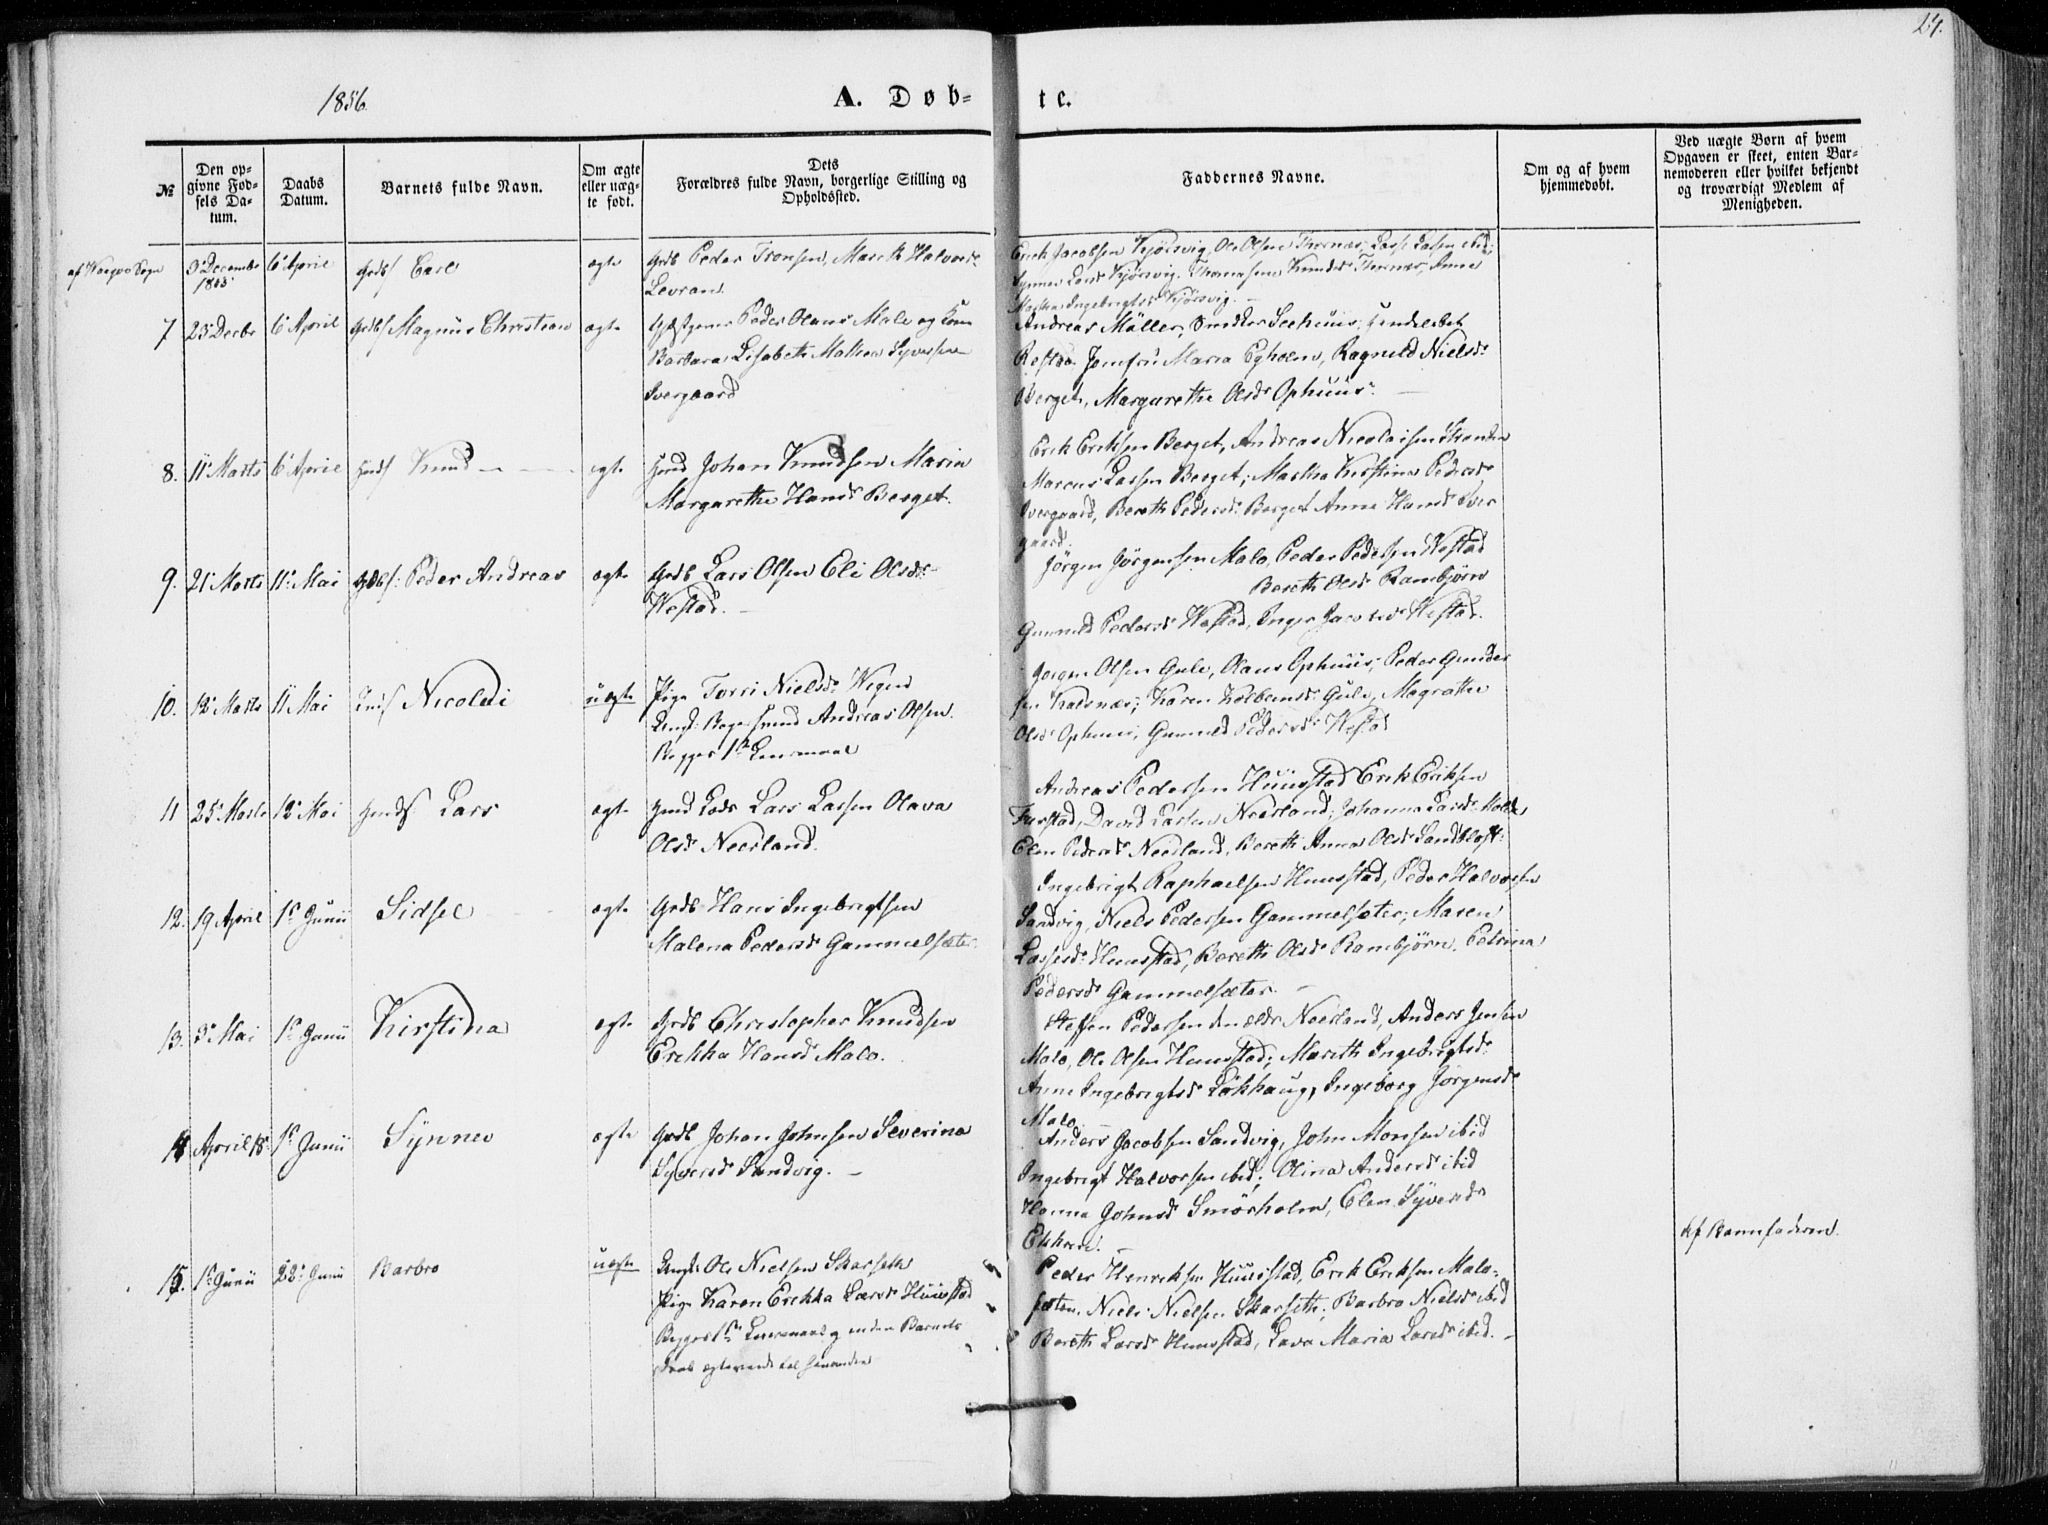 24.
1856.
A. Døb-
te.
№
Den op-
givne Fød-
sels Da-
tum.
Daabs
Datum.
Barnets fulde Navn.
Om ægte
eller uæg-
te født.
Dets
Forældres fulde Navn, borgerlige Stilling og
Opholdssted.
Faddernes Navne.
Om og af hvem
hjemmedøbt.
Ved uægte Børn af hvem
Opgaven er skeet, enten Bar-
nemoderen eller hvilket bekjendt
og troværdigt Medlem af
Menigheden.
3 Decembr
1855
6 April
Carl
ægte
Grdb Peder Tronsen, Marith Halvorsd.
Levran.
Erich Jacobsen Kjørsvig, Ole Olsen Thornæs, Lasse Lassen ibid;
Synnev Larsd Kjørsvig, Knudsd Thornæs, Anne
Martha Ingebrigtsd Kjørsvig.
7
23 Decbr
6 April
Magnus Christian
ægte
Peder Olaus Malo og Kone
Barbara Lisabeth Malhea Syversen
Ivergaard
Andreas Müller, Snedker Seehuus,
Jomfru Maria Egholm, Ragnild Nielsd.
Berget, Margarethe Olsd. Ophuus.
8.
11 Marts
6 April
Knud
ægte
Huusmd Johan Knudsen Marin
Margarethe Hansd. Berget.
Erik Eriksen Berget, Andreas Nicolaisen Stranden
Marcus Larsen Berget; Martha Kirstina Pedersd.
Ivergaard, Bereth Pedersd. Berget Anne Hansd. Iver
gaard.
9.
21 Marts
11. Mai
Peder Andreas
ægte
Grdb Lars Olsen Eli Olsd.
Hestad.
Jörgen Jörgensen Malo, Peder Pedersen Hestad
Bereth Olsd. Rambjørn
Gunnild Pedersd. Hestad, Inger Jacobsd. Hestad.
10.
12 Marts
11 Mai
Nicolai
uægte
Pige Torri Nielsd. Wigen
Andreas Olsen.
Begges 1ste Leiermaal
Jørgen Olsen Gule, Olaus Ophuus, Peder Gunder
sen Kalsnæs; Karen Kolbeinsd. Gule, Magrethe
Olsd. Ophuus, Gunnild Pedersd. Hestad
11
25 Marts
12 Mai
Lars
ægte
Lars Larsen Olava
Olsd. Neerland.
Andreas Pedersen Huusstad Erik Eriksen
Farstad, David Larsen Neerland; Johanna Larsd. Malo
Elen Pedersd. Neerland, Bereth Anna Olsd. Sandbloft.
12.
19 April
1ste Junii
Sidsel
ægte
Grdb Hans Ingebrigtsen
Malena Pedersd. Gammelsæter.
Ingebrigt Raphaelsen Huusstad, Peder Halvorsen
Sandvig, Niels Pedersen Gammelsæter; Maren
Lassesd. Huusstad, Bereth Olsd. Rambjørn. Petrina
Pedersd. Gammelsæter.
13.
3 Mai
1ste Junii
Kirstina
ægte
Grdb Christopher Knudsen
Erikka Hansd. Malo.
Steffen Pedersen den ældr Neerland, Anders Jensen
Malo, Ole Olsen Huusstad; Marith Ingebrigtsd.
Anne Ingebrigtsd. Løkhaug, Ingeborg Jørgensd.
Malo.
14
April 18.
1ste Junii
Synnev
ægte
Grdb Johan Johnsen Severina
Syversd. Sandvig.
Anders Jacobsen Sandvig, John Monsen ibid
Ingebrigt Halvorsen ibid; Olina Andersd. ibid
Hanna Johnsd. Smørholm, Elen Syversd.
15.
1ste Junii
22. Junii
Barbro
uægte
Ungk. Ole Nielsen Skarseth
Pige Karen Erikka Larsd. Huusstad
Begges 1ste Leiermaal og inden Barnets
Daab ægteviede til hinanden
Peder Henriksen Huusstad, Erik Eriksen Malo-
sæter, Niels Nielsen Skarseth; Barbro Nielsd. ibid
Bereth Larsd. Huusstad, Lava Maria Larsd. ibid.
Af Barnefaderen.